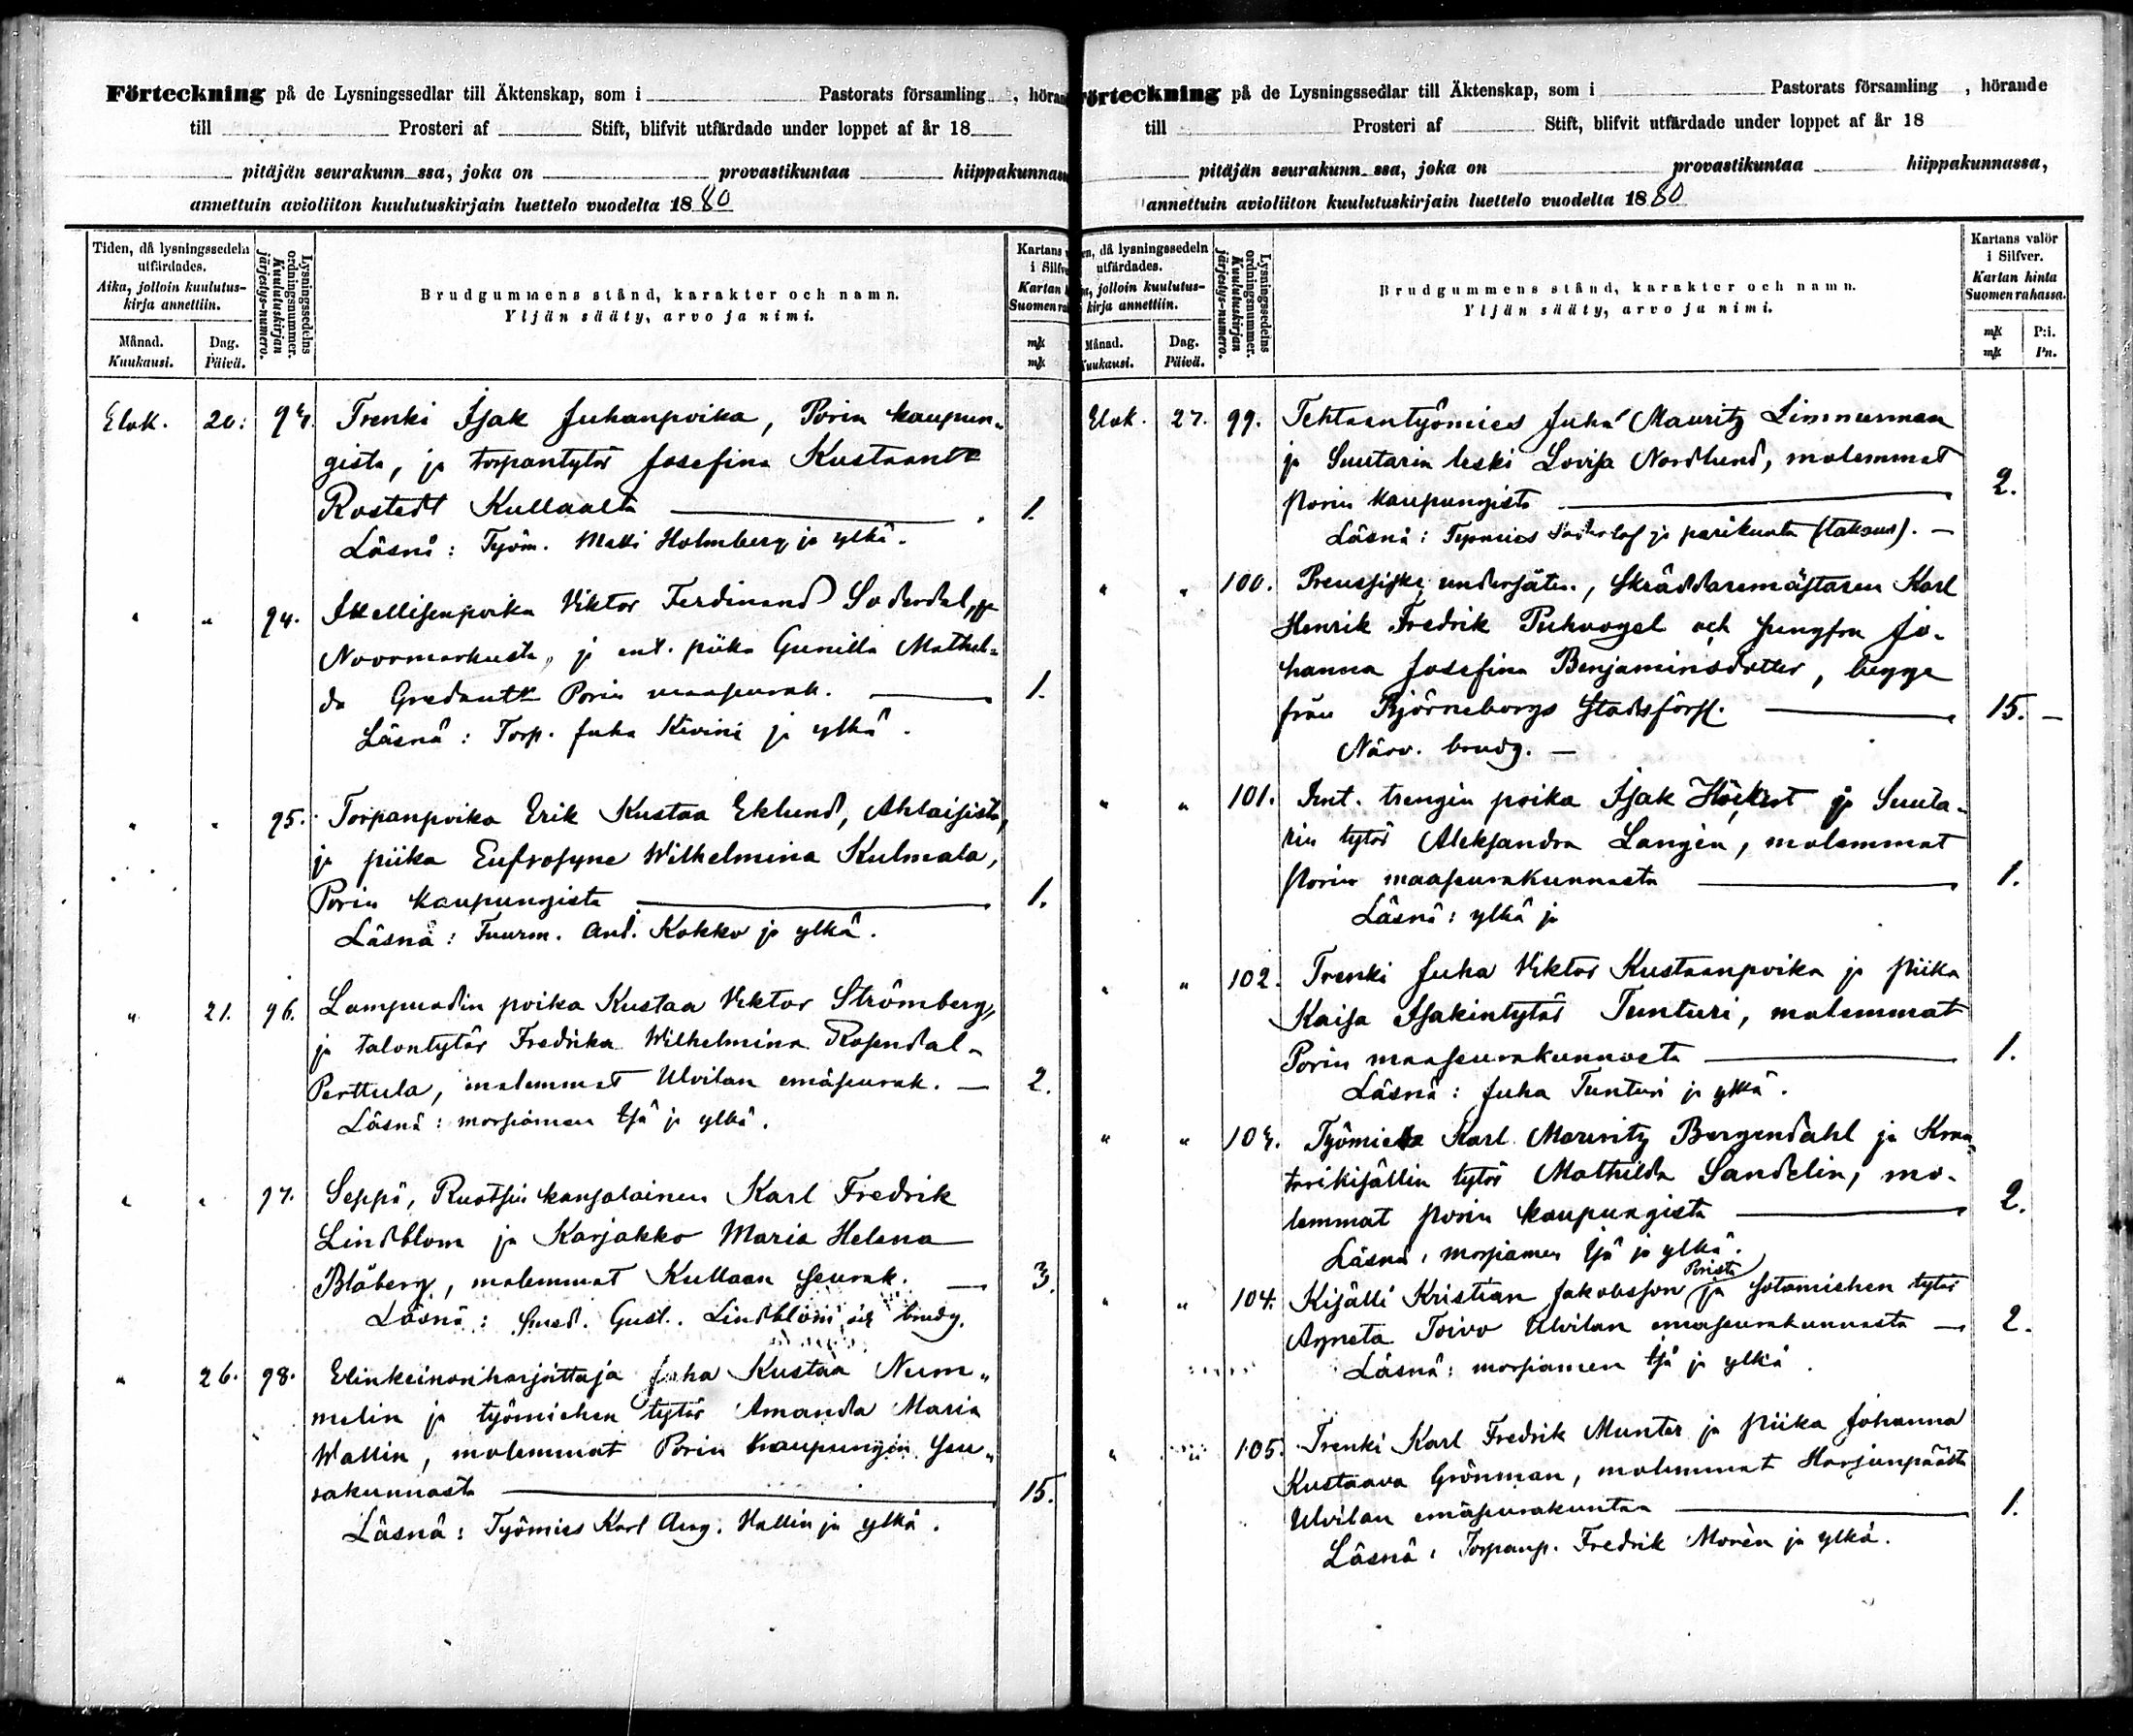 Förteckning på de Lysningssedlar till Äktenskap, som i Pastorats församling , höran
till Prosteri af Stift, blifvit utfärdade under loppet af år 18
pitäjän seurakunn ssa, joka on provastikuntaa hiippakunnass
annettuin avioliiton kuulutuskirjain luettelo vuodelta 1880
Tiden, då lysningssedeln
utfärdades.
Aika, jolloin kuulutus-
kirja annettiin.
Månad.
Kuukausi.
Dag.
Päivä.
Lysningssedelns
ordningsnummer.
Kuulutuskirjan
järjestys-numero.
Brudgummens stånd, karakter och namn.
Yljän sääty, arvo ja nimi.
Kartans v
i Silfve
Kartan h
Suomen ra
mk
mk
Elok. 20. 93. Trenki Isak Juhanpoika, Porin kaupun-
gista, ja torpantytär Josefina Kustaantr
Rostedt Kullaalta 1.
Läsnä: Työm. Matti Holmberg ja ylkä.
" " 94. Itellisenpoika Viktor Ferdinand Soderdal,
Noormarkusta, ja ent. piika Gunilla Mathil-
da Gredantr Porin maaseurak. 1.
Läsnä: Torp. Juha Kivini ja ylkä.
" " 95. Torpanpoika Erik Kustaa Eklund, Ahlaisista,
ja piika Eufrosyne Wilhelmina Kulmala,
Porin kaupungista 1.
Läsnä: Fuurm. And. Kokko ja ylkä.
" 21. 96. Lampuodin poika Kustaa Viktor Strömberg,
ja talontytär Fredrika Wilhelmina Rosendal-
Perttula, molemmat Ulvilan emäseurak. — 2.
Läsnä: morsiamen isä ja ylkä.
" " 97. Seppä, Ruotsin kansalainen Karl Fredrik
Lindblom ja Karjakko Maria Helena
Blåberg, molemmat Kullaan seurak. — 3.
Läsnä: Smed. Gust. Lindblom och brudg.
" 26. 98. Elinkeinonharjoittaja Juha Kustaa Num-
melin ja työmiehen tytär Amanda Maria
Wallin, molemmat Porin kaupungin seu-
rakunnasta 15.
Läsnä: Työmies Karl Aug. Hallin ja ylkä.
Förteckning på de Lysningssedlar till Äktenskap, som i Pastorats församling , hörande
till Prosteri af Stift, blifvit utfärdade under loppet af år 18
pitäjän seurakunn ssa, joka on provastikuntaa hiippakunnassa,
annettuin avioliiton kuulutuskirjain luettelo vuodelta 1880
en, då lysningssedeln
utfärdades.
a, jolloin kuulutus-
kirja annettiin.
Månad.
Kuukausi.
Dag.
Päivä.
Lysningssedelns
ordningsnummer.
Kuulutuskirjan
järjestys-numero.
Brudgummens stånd, karakter och namn.
Yljän sääty, arvo ja nimi.
Kartans valör
i Silfver.
Kartan hinta
Suomen rahassa.
mk P:i.
mk Pn.
Elok. 27. 99. Tehtaantyömies Juha Mauritz Limnerman
ja Suutarin leski Lovisa Nordlund, molemmat
Porin kaupungista 2.
Läsnä: Työmies ja parikunta (takaus). —
" " 100. Preussiske undersåten, Skräddaremästaren Karl
Henrik Fredrik Puhvogel och Jungfru Jo-
hanna Josefina Benjaminsdotter, begge
från Björneborgs Stadsförs. 15. —
Närv. brudg. —
" " 101. Ent. trengin poika Isak Höckert ja Suuta-
rin tytär Aleksandra Langén, molemmat
Porin maaseurakunnasta 1.
Läsnä: ylkä ja
" " 102. Trenki Juha Viktor Kustaanpoika ja piika
Kaisa Isakintytär Tunturi, molemmat
Porin maaseurakunnasta 1.
Läsnä: Juha Tunturi ja ylkä.
" " 103. Työmies Karl Mauritz Bergendahl ja
tytär Mathilda Sandelin, mo-
lemmat Porin kaupungista 2.
Läsnä: morsiamen isä ja ylkä.
" " 104. Kisälli Kristian Jakobsson Porista ja Sotamiehen tytär
Agneta Toivo Ulvilan emäseurakunnasta — 2.
Läsnä: morsiamen isä ja ylkä.
" " 105. Trenki Karl Fredrik Munter ja piika Johanna
Kustaava Grönman, molemmat Harjunpäästä
Ulvilan emäseurakuntaa 1.
Läsnä: Torpanp. Fredrik Morén ja ylkä.